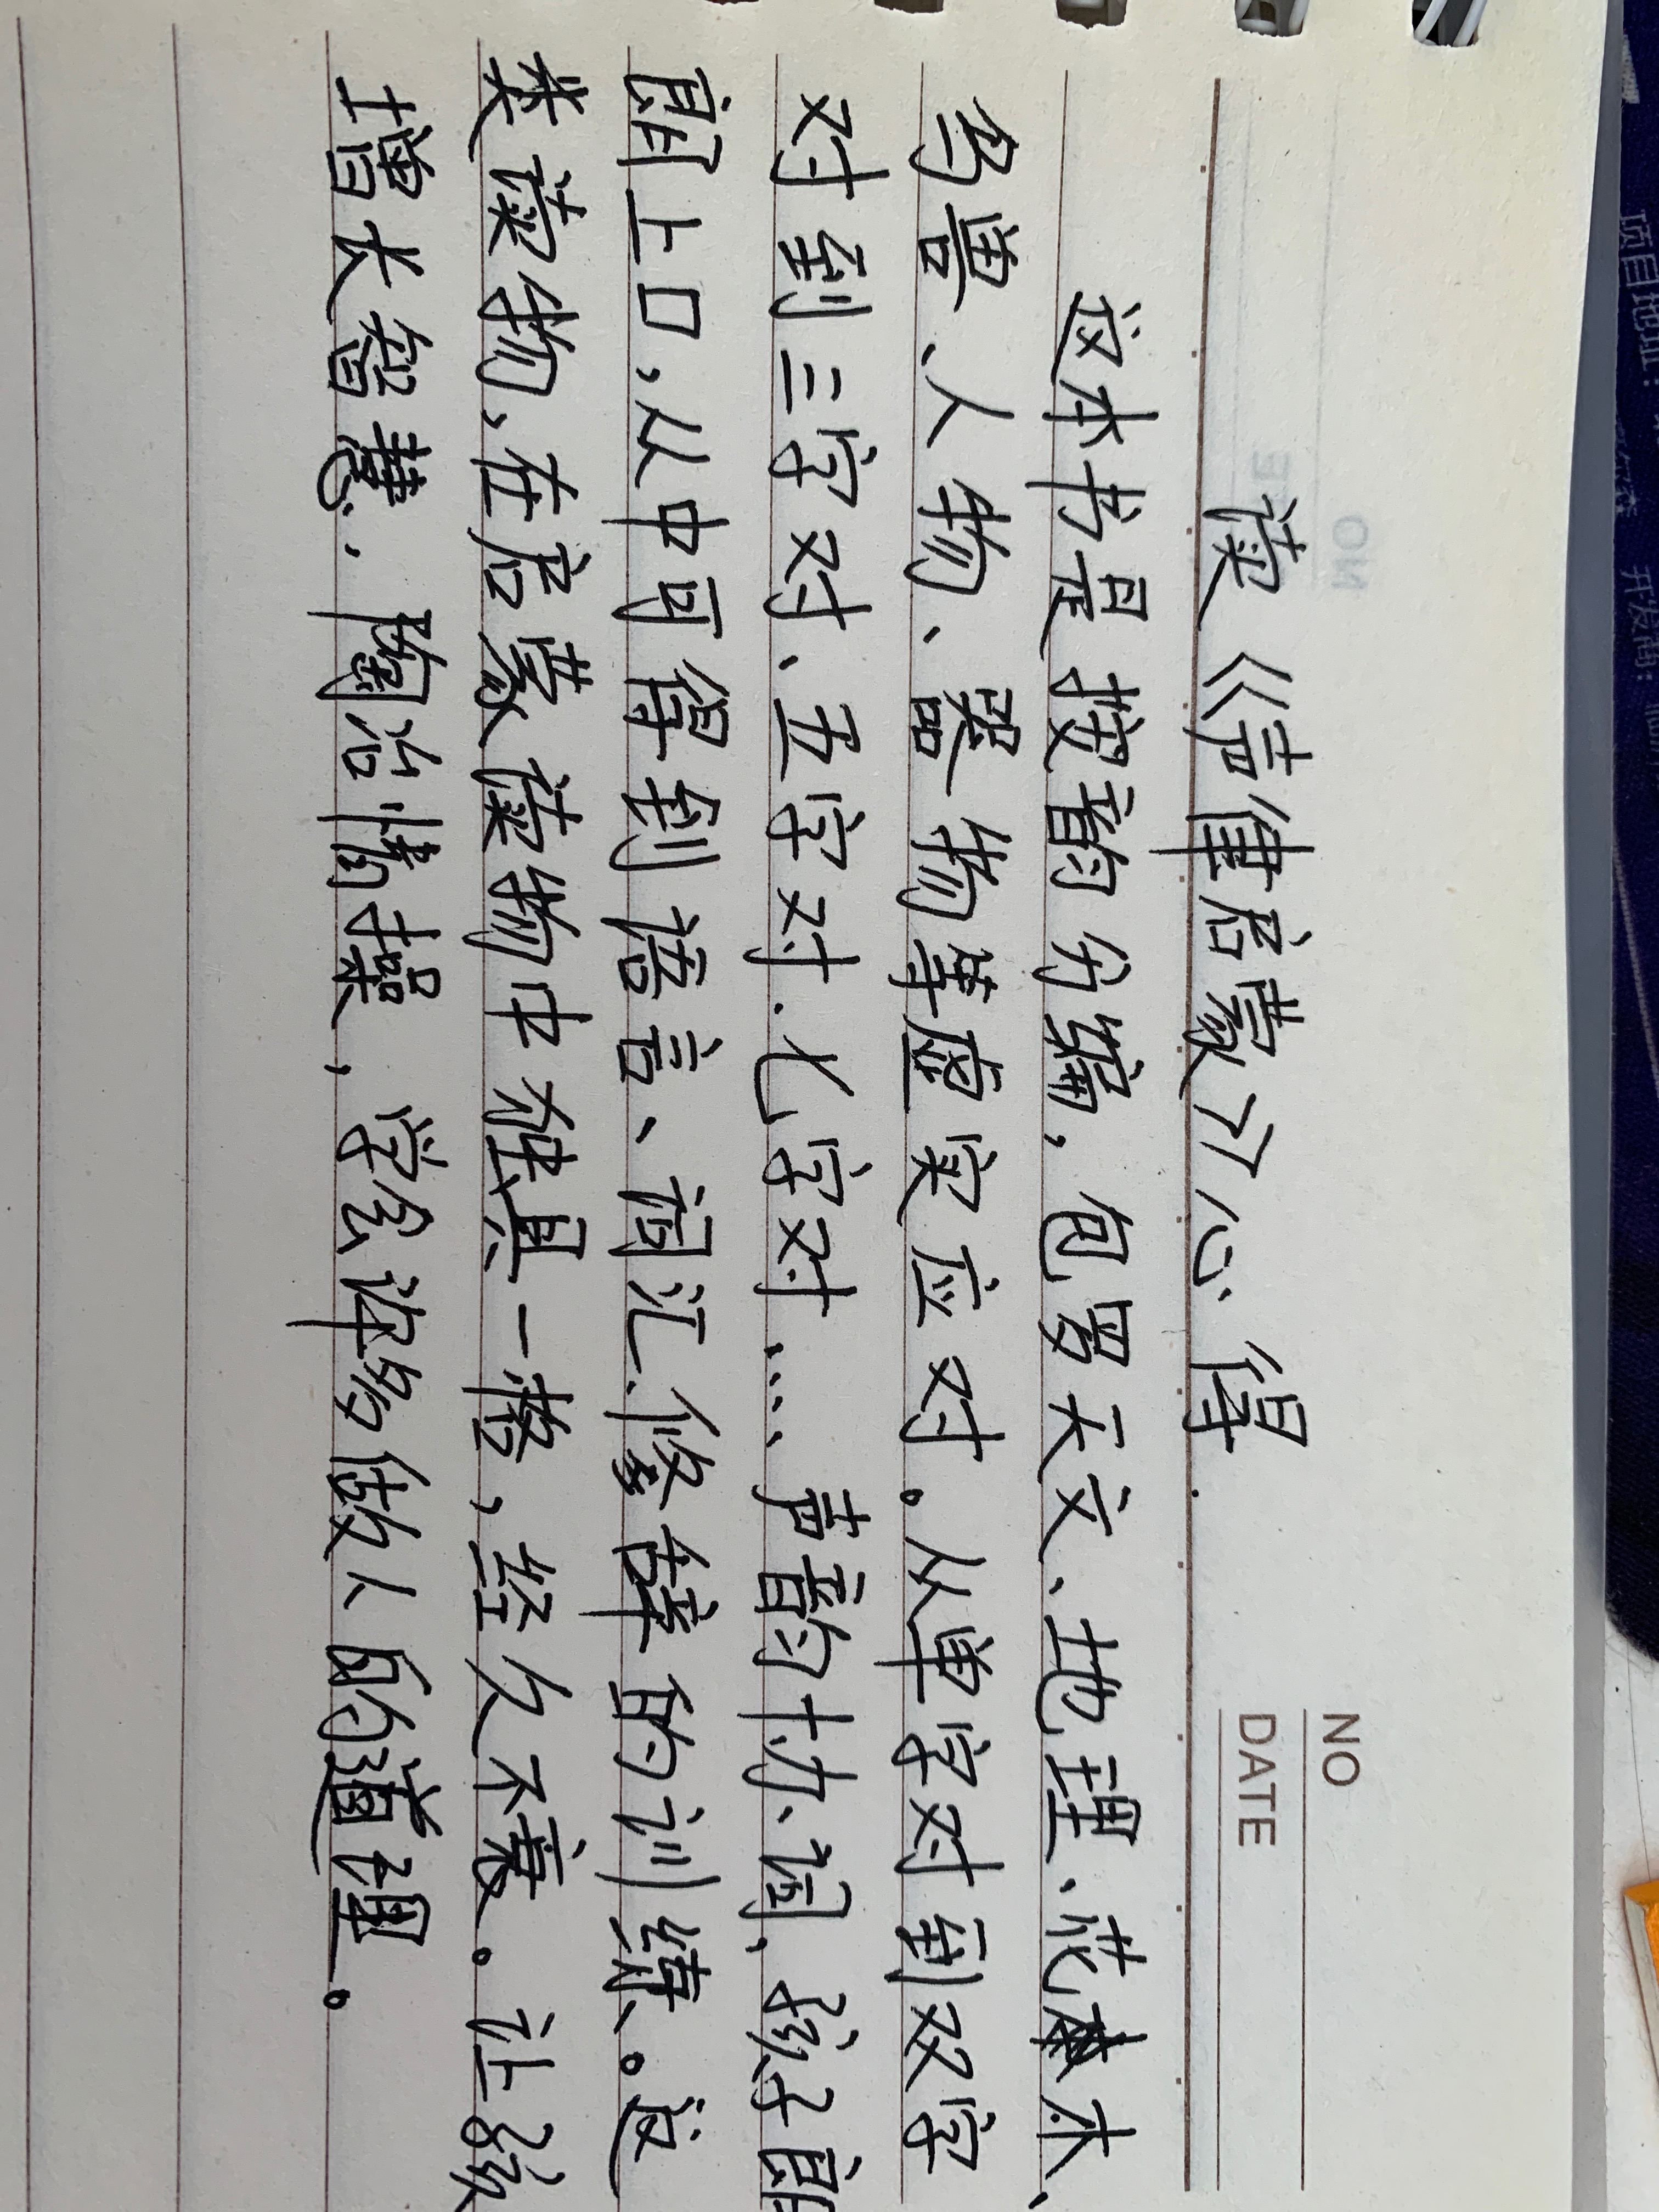 NO
DATE
读《声律启蒙》心得.
这本书是按韵分编，包罗天文、地理、花木、
鸟兽、人物、器物等虚实应对。从单字对到双字
对到三字对、五字对.七字对...、声韵协调，孩子朗
朗上口，从中可得到语言、词汇.修辞的训练。这
类读物，在启蒙读物中独具一格，经久不衰。让孩
增长智慧.陶冶情操，学会许多做人的道理。
项目地址：
开发商：